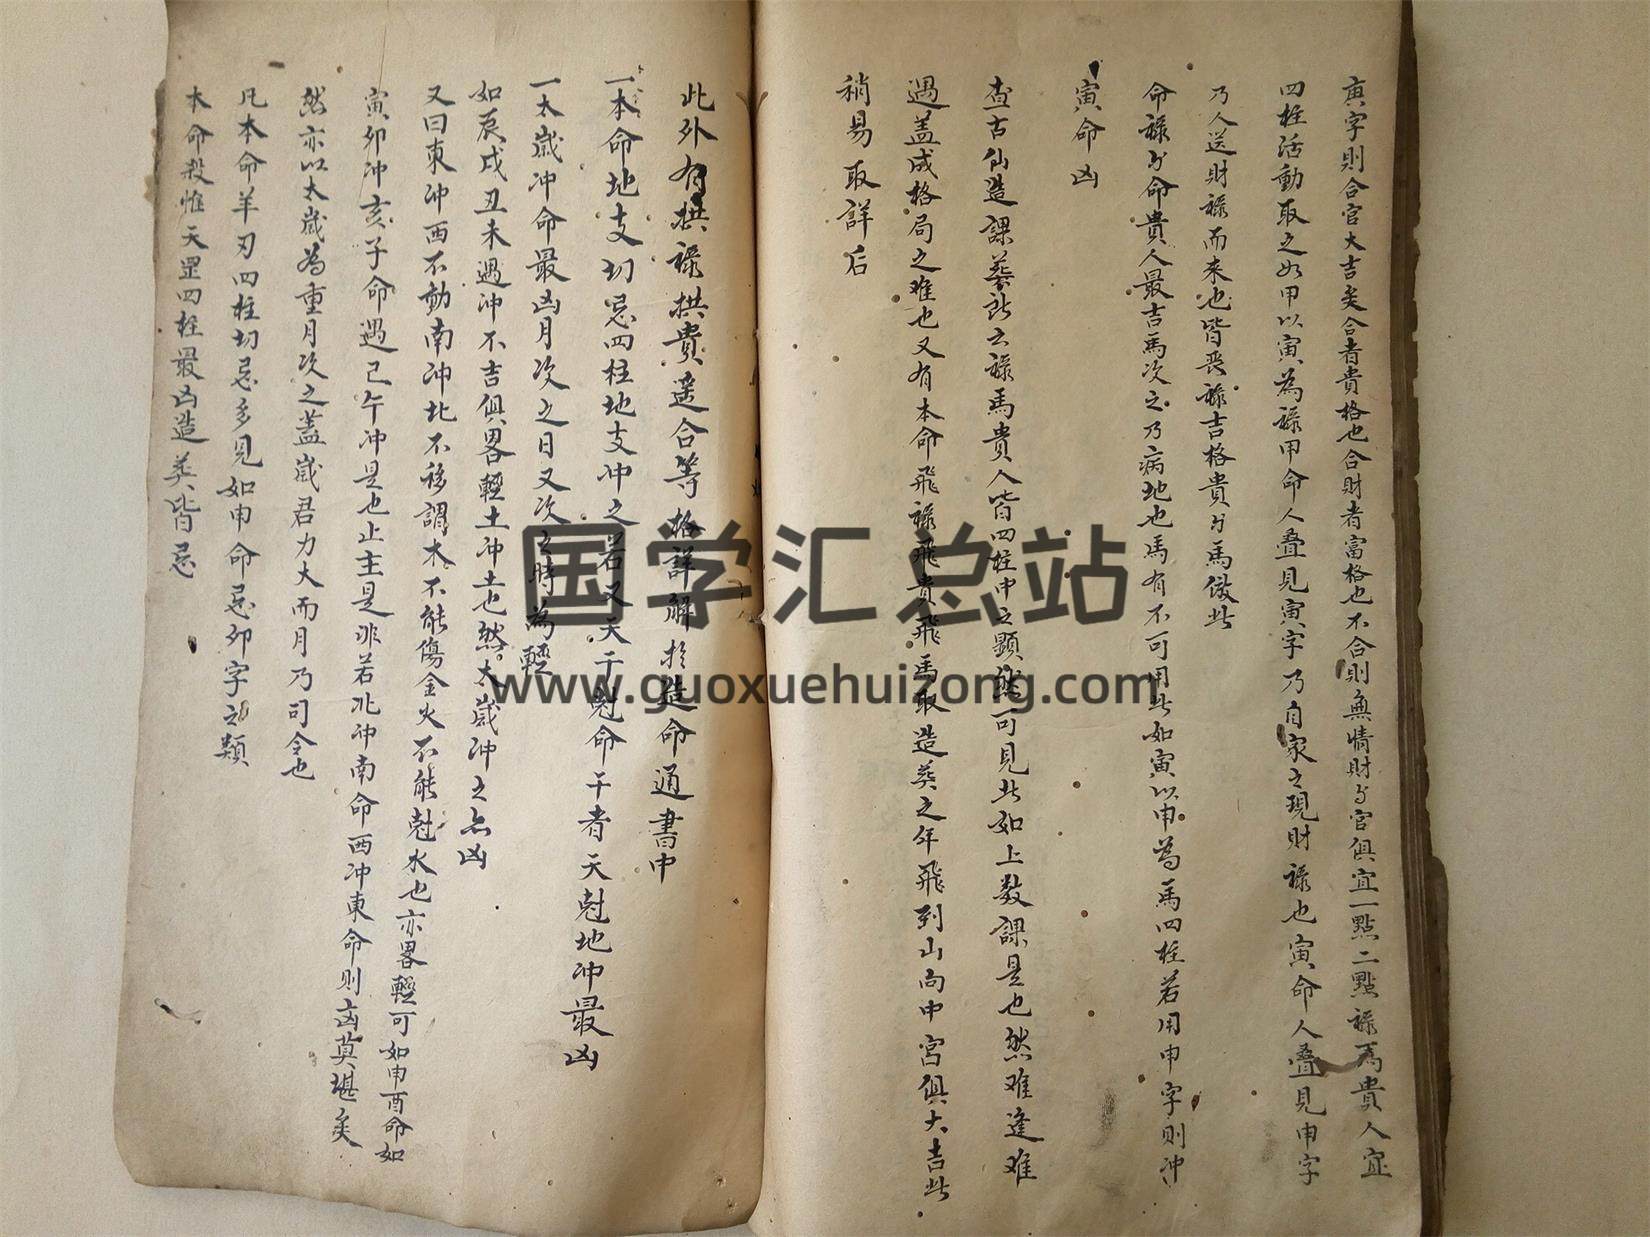 庚字則合官大吉矣合者貴格也合財者富格也不合則無情財与官俱宜一點二點祿馬貴人宜
四柱活動取之如甲以寅為祿甲命人疊見寅字乃自家之現財祿也寅命人疊見申字
乃人送財祿而来也皆丧祿吉格貴与馬倣此
命祿与命貴人最吉馬次之乃病地也馬有不可用此如寅以申為馬四柱若用申字則冲
寅命凶
查古仙造課葬訣云祿馬貴人皆四柱中之顯然可見此如上数課是也然难逢难
遇盖成格局之难也又有本命飛祿飛貴飛馬取造葬之年飛到山向中宮俱大吉此
稍易取詳后
此外有拱祿拱貴遥合等格詳解於造命通書中
一本命地支切忌四柱地支冲之若又天干尅命干者天尅地冲最凶
一太歲冲命最凶月次之日又次之時為輕
如辰戌丑未遇冲不吉俱畧輕土冲土也然太歲冲之亦凶
又曰東冲西不動南冲北不移謂木不能傷金火不能尅水也亦畧輕可如申酉命如
寅卯冲亥子命遇己午冲是也止主是非若北冲南命西冲東命則凶莫堪矣
然亦以太歲為重月次之盖歲君力大而月乃司令也
凡本命羊刃四柱切忌多見如甲命忌卯字之類
本命殺惟天罡四柱最凶造葬皆忌
国学汇总站
www.guoxuehuizong.com